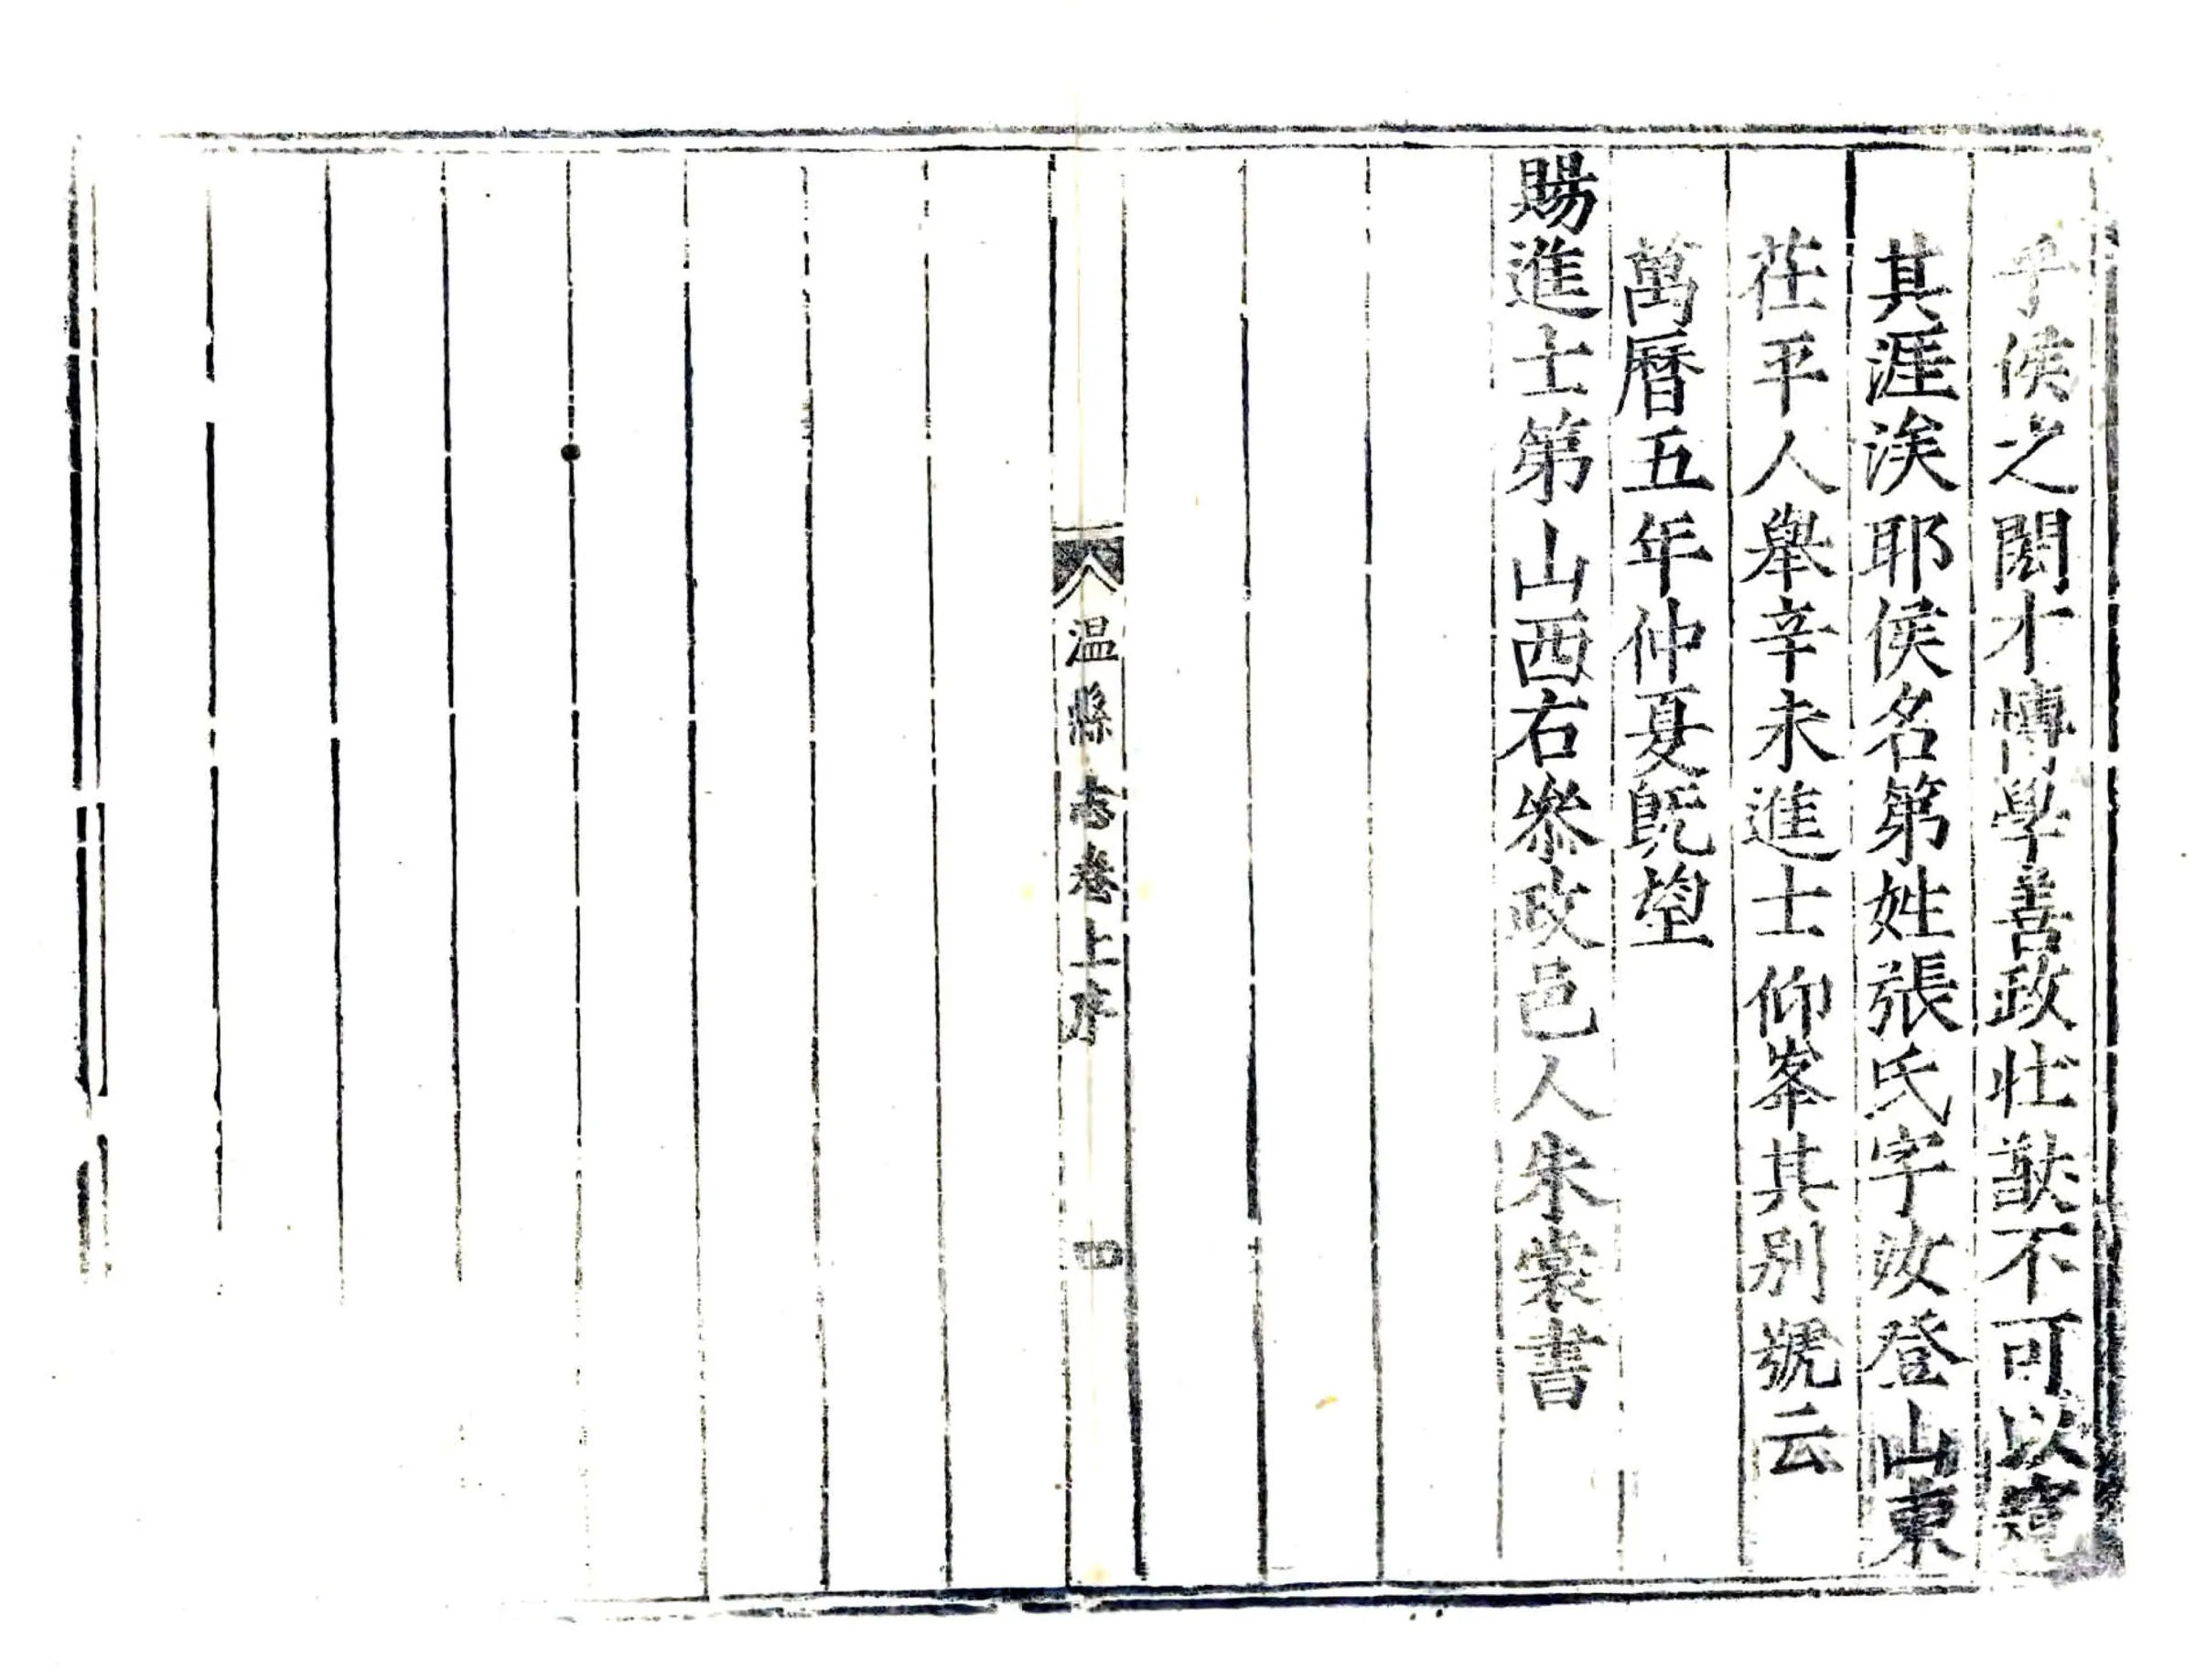 乎侯之閎才博學善政壯猷不可以窺
其涯涘耶侯名第姓張氏字汝登山東
茌平人舉辛未進士仰峯其別號云
萬曆五年仲夏旣望
賜進士第山西右叅政邑人朱裳書
温縣志卷上序
四